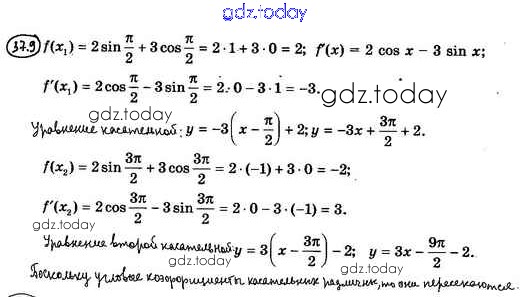 gdz.today
37.9 f(x₁) = 2 sin π/2 + 3 cos π/2 = 2 · 1 + 3 · 0 = 2; f′(x) = 2 cos x − 3 sin x;
f′(x₁) = 2 cos π/2 − 3 sin π/2 = 2 · 0 − 3 · 1 = −3.
gdz.today
gdz.today
Уравнение касательной: y = −3(x − π/2) + 2; y = −3x + 3π/2 + 2.
gdz.today
f(x₂) = 2 sin 3π/2 + 3 cos 3π/2 = 2 · (−1) + 3 · 0 = −2;
gdz.today
f′(x₂) = 2 cos 3π/2 − 3 sin 3π/2 = 2 · 0 − 3 · (−1) = 3.
gdz.today
Уравнение второй касательной: y = 3(x − 3π/2) − 2; y = 3x − 9π/2 − 2.
Поскольку угловые коэффициенты касательных различны, то они пересекаются.
gdz.today